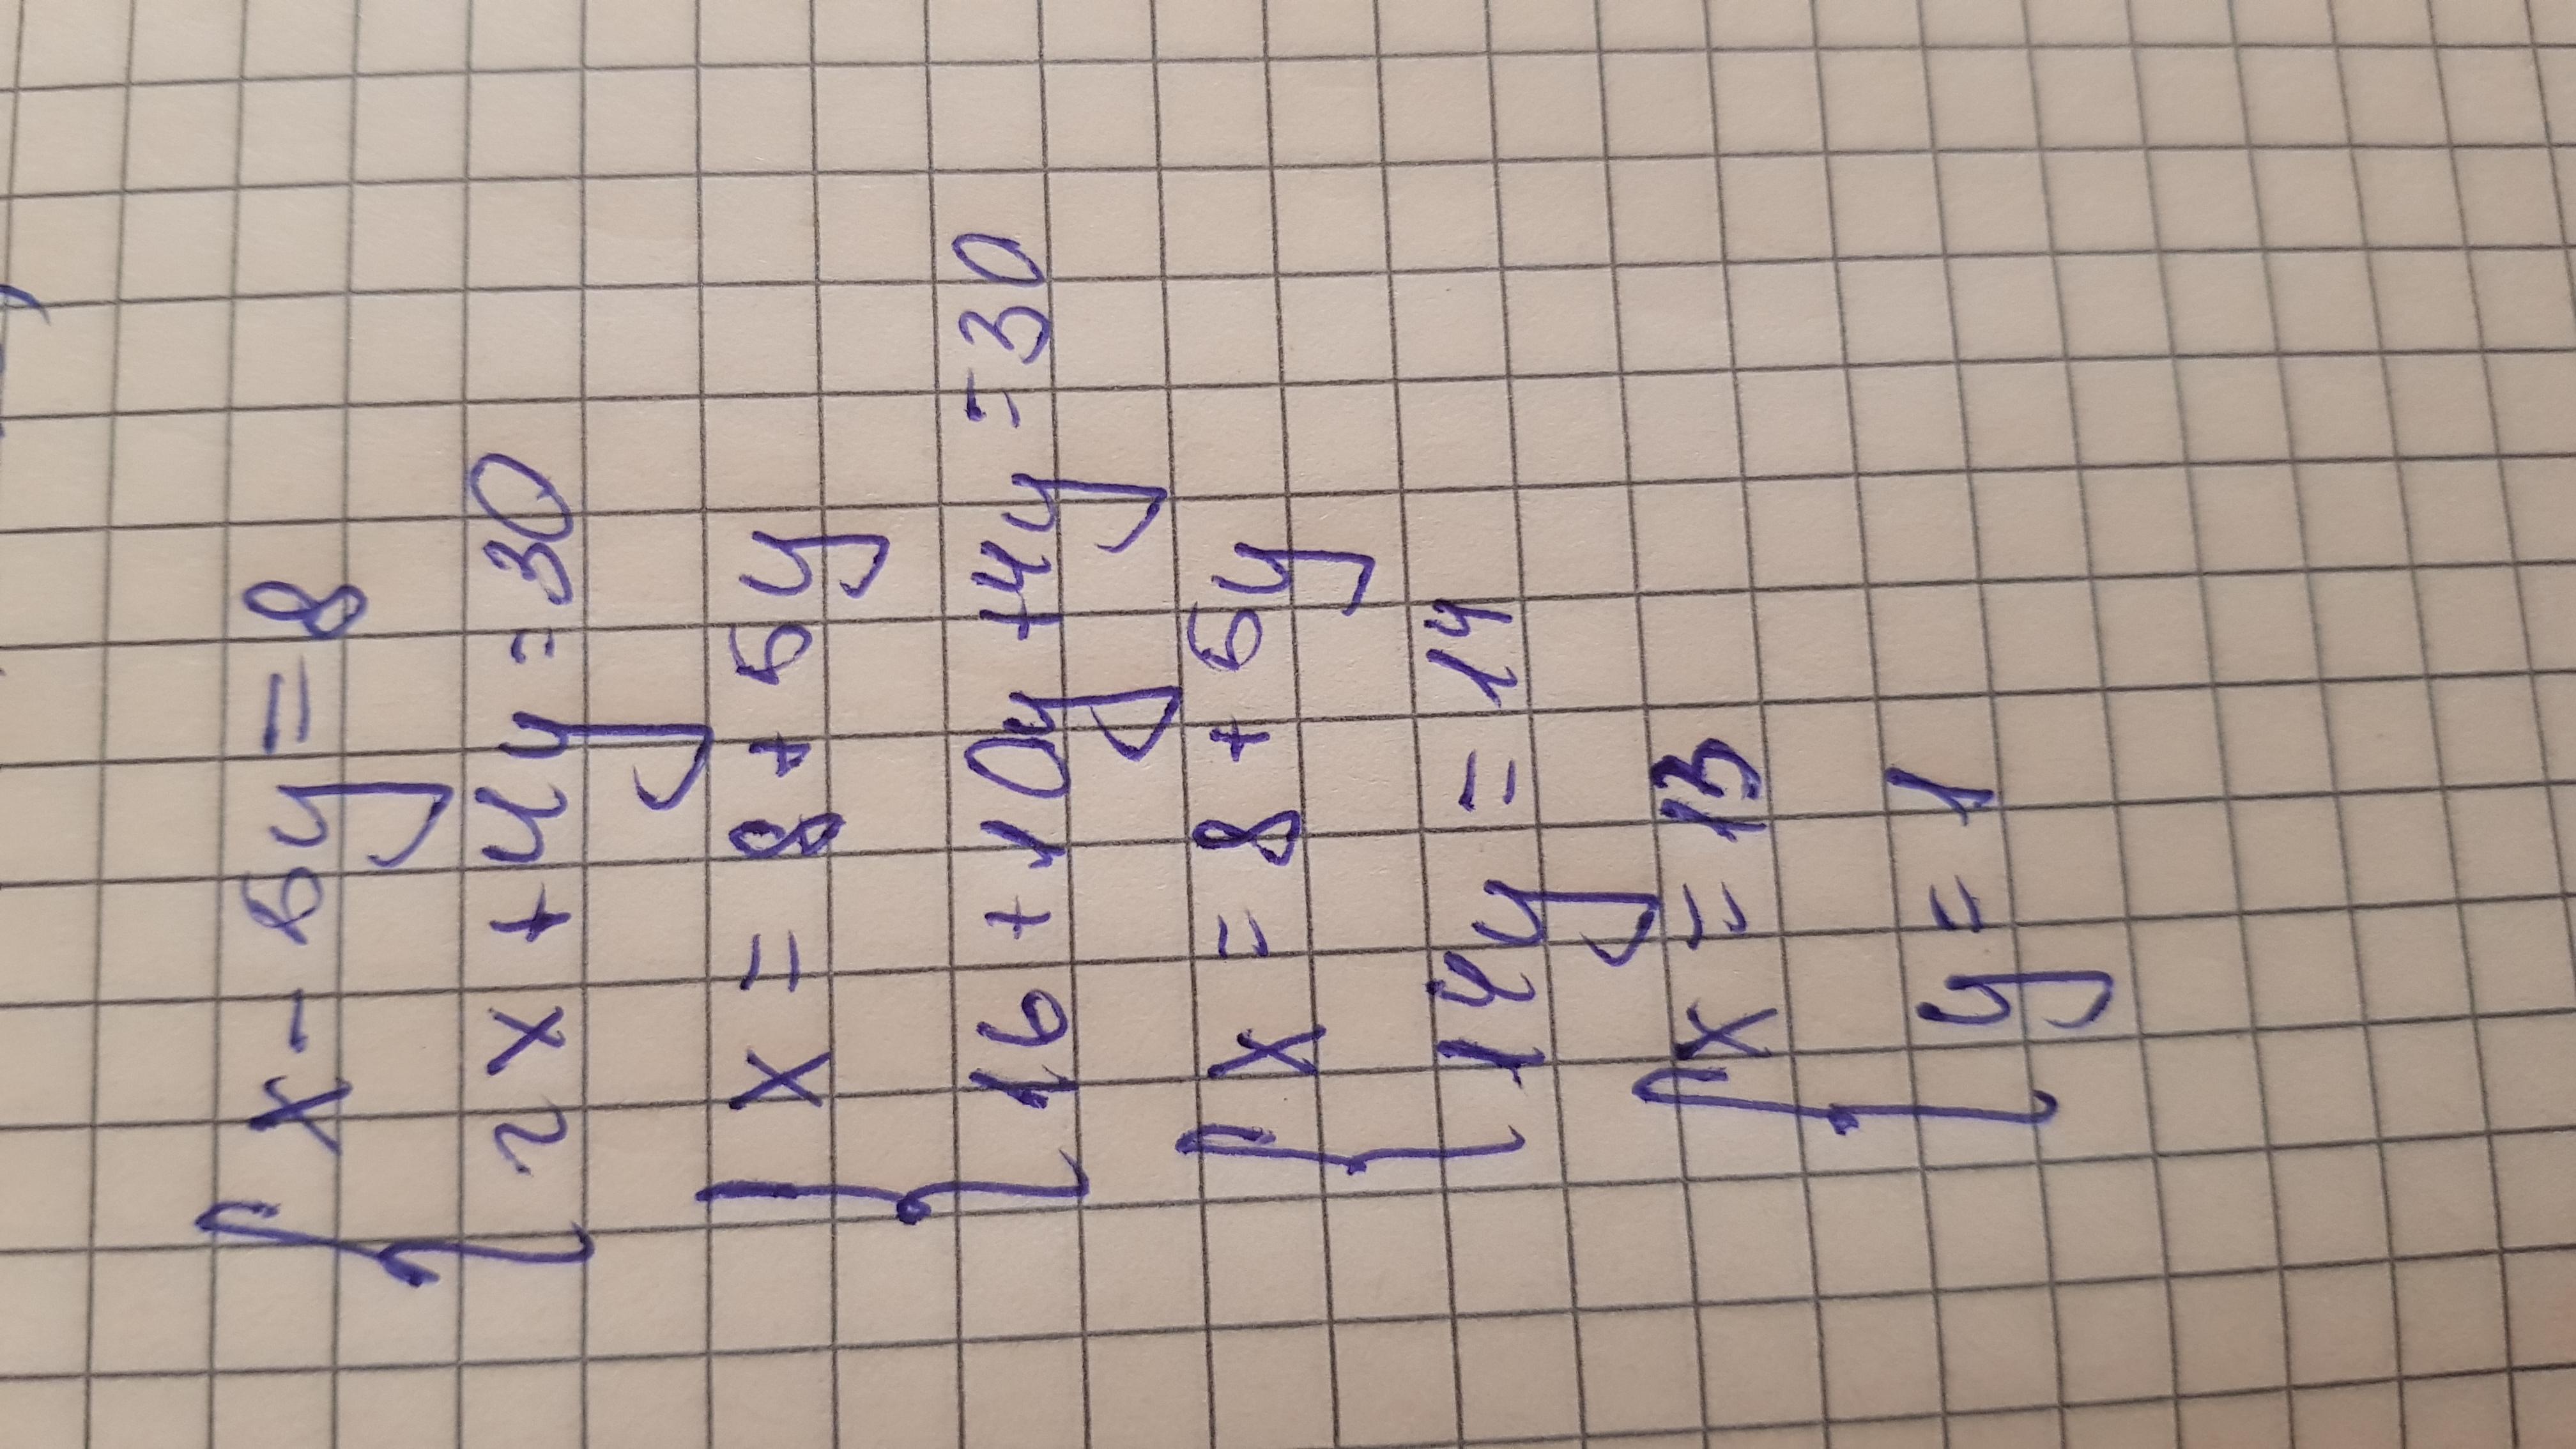 x - 5y = 8
2x + 4y = 30
x = 8 + 5y
16 + 10y + 4y = 30
x = 8 + 5y
14y = 14
x = 13
y = 1